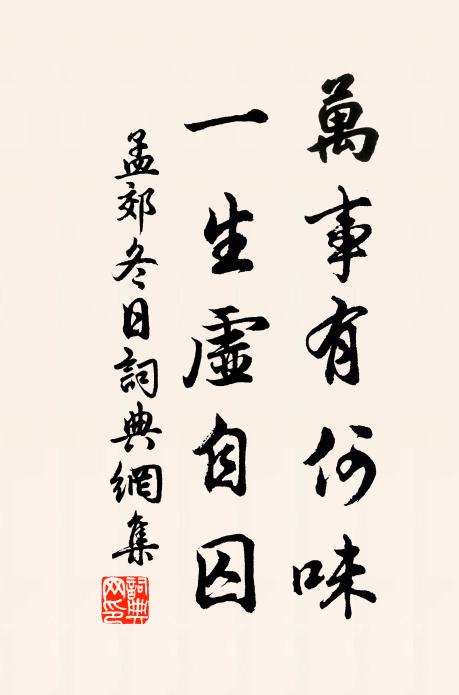 萬事有何味
一生虛自囚
孟郊冬日詞典網集
詞典網印